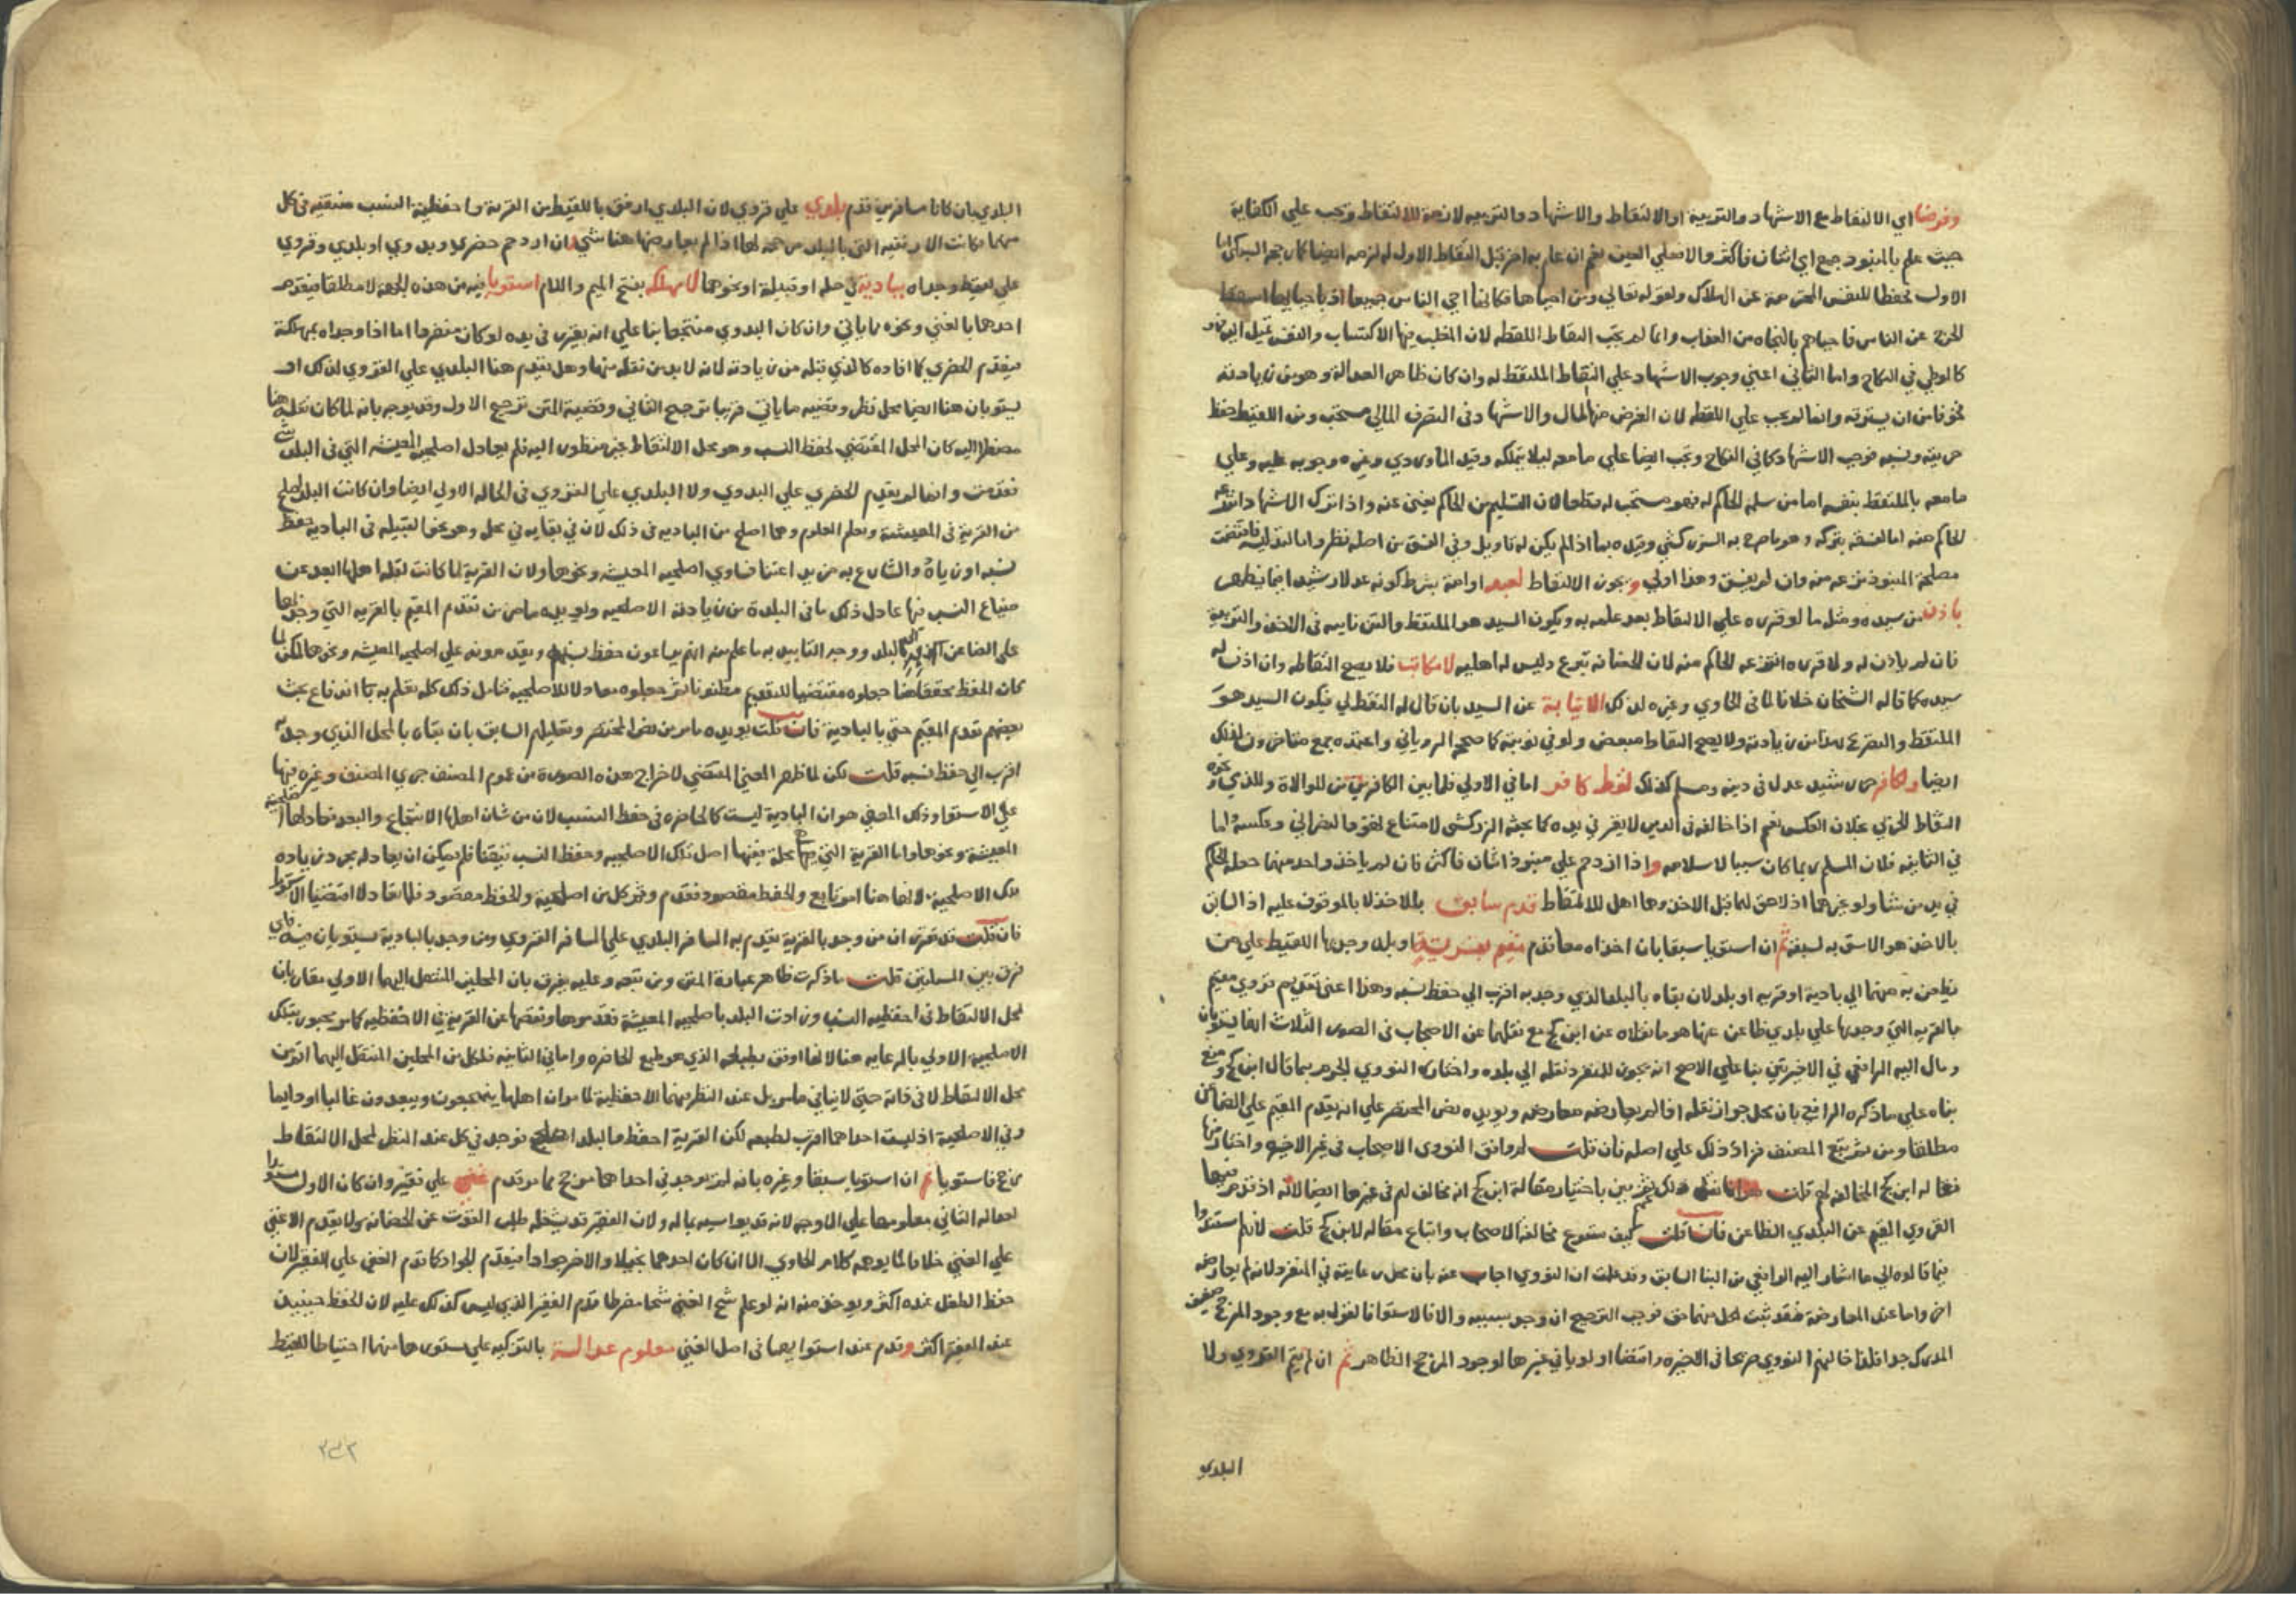 وفرضا اي الالتقاط مع الاشهاد والتربية او الالتقاط والاشهاد والتربيه لان الالتقاط وتجب علي الكفاية
حيث علم بالمنبوذ جمع اي اثنان فاكثر والا فعلي العين نعم ان علم به اخر قبل التقاط الاول له لزمه ايضا
الاول حفظا للنفس المحترمة عن الهلاك ولقوله تعالي ومن احياها فكانما احيي الناس جميعا اذ باحيائها اسقط
الحرج عن الناس فاحياهم بالنجاه من العقاب وانما لم يجب التقاط اللقطه لان المغلب فيها الاكتساب والنفس تميل اليه
كالوطي في النكاح واما الثاني اعني وجوب الاشهاد علي التقاط الملتقط له وان كان ظاهر العدالة وهو من زيادته
خوفا من ان يسترقه وانما لم يجب علي اللقطه لان الغرض منها المال والاشهاد في التصرف المالي مستحب ومن اللقيط حفظ
حريته ونسبه فوجب الاشهاد كما في النكاح ويجب ايضا علي ما معه ليلا يتملكه وقيد الماوردي وغيره وجوبه عليه وعلي
ما معه بالملتقط بنفسه اما من سلمه الحاكم له فهو مستحب له قطعا لان التسليم من الحاكم يغني عنه واذا ترك الاشهاد انتزعه
الحاكم منه اما لفسقه بتركه وهو ما صرح به الزركشي وقيده بما اذا لم يكن له تاويل وفي الفسق من اصله نظر واما
مصلحة المنبوذ نزعه منه وان لم يفسق وهذا اولي ويجوز الالتقاط لعبد او امة بشرط كونه عدلا رشيدا فيما يظهر
باذن من سيده ومثل ما لو قرره علي الالتقاط بعد علمه به ويكون السيد هو الملتقط والقن نايبه في الاخذ والتربية
فان لم ياذن له ولا قرره انتزعه الحاكم منه لان الحضانة تبرع وليس له اهليه لا مكاتب فلا يصح التقاطه وان اذن له
سيده كما قاله الشيخان خلافا لما في الحاوي وغيره لذلك الا نيابة عن السيد بان قال له التقط لي فيكون السيد هو
الملتقط والتصريح بهذا من زيادته ولا يصح التقاط مبعض ولو في نوبته كما صححه الروياني واعتمده جمع متاخرون لذلك
ايضا ولكافر رشيد عدل في دينه ومسلم كذلك لقط كافر اما في الاولي فلما بين الكافرين من الموالاة وللذمي ونحوه
التقاط الحربي بخلاف العكس نعم اذا خالفه في الدين لا يقر في يده كما بحثه الزركشي لامتناع لحوقه النصراني وعكسه واما
في الثانيه فلان المسلم ربما كان سببا لاسلامه واذا ازدحم علي منبوذ اثنان فاكثر فان لم ياخذه واحد منهما جعله الحاكم
في يد من شا ولو غيرهما اذ لا حق لهما قبل الاخذ وهما اهل للالتقاط قدم سابق بالاخذ لا بالوقوف عليه اذ السابق
بالاخذ هو الاحق به لسبقه ثم ان استويا سبقا بان اخذاه معا قدم مقيم بقرية او بلد وجد بها اللقيط علي من
يظعن به منهما الي بادية او قريه او بلد لان بقاه بالبلد الذي وجد به اقرب الي حفظ نسبه وهذا اعني تقديم قروي مقيم
بالقريه التي وجد بها علي بلدي ظاعن عنها هو ما نقلاه عن ابن كج مع نقلهما عن الاصحاب في الصور الثلاث انهما يستويان
ومال اليه الرافعي في الاخيرتين بنا علي الاصح انه يجوز للمنفرد نقله الي بلده واختاره النووي الجزم بما قال ابن كج ومنع
بناه علي ما ذكره الرافعي بان محل جواز نقله اذا لم يعارضه معارض ويويده نص المختصر علي انه يقدم المقيم علي الظاعن
مطلقا ومن ثم تبع المصنف فزاد ذلك علي اصله فان قلت لم وافق النووي الاصحاب في غير الاخيره واختار فيها
مقاله ابن كج المخالفه لهم قلت لم يبين باختيار مقالة ابن كج انه مخالف لهم في غيرها ايضا لانه اذا قدم فيها
القروي المقيم عن البلدي الظاعن فان قلت كيف ستسوغ مخالفة الاصحاب واتباع مقاله لابن كج قلت لانهم استندوا
فيما قالوه الي ما اشار اليه الرافعي من البنا السابق وقد علمت ان النووي اجاب عنه بان محل رعايته في المنفرد لانه لم يعارضه
اخر واما عند المعارضة فقد ثبت لكل منهما حق فوجب الترجيح ان وجد سببه والا فالاستوا فالقول به مع وجود المرجح ضعيف
المدرك جدا فلذا خالفهم النووي صريحا في الاخيره واقتضا او لويا في غيرها لوجود المرجح الظاهر ثم ان لم يقم القروي ولا
البلدي
البلدي بان كانا مسافرين قدم بلدي علي قروي لان البلدي ارفق باللقيط من القرية واحفظية النسب منتفيه في كل
منهما فكانت الارفقيه التي بالبلد مرجحه لها اذا لم يعارضها هنا شي وان ازدحم حضري وبدوي او بلدي وقروي
علي لقيط وجداه ببادية في حله او قبيلة او نحوهما لا مهلكه بفتح الميم واللام استويا فيه من هذه الجهة لا مطلقا فيقدم
احدهما بالغني ونحوه مما ياتي وان كان البدوي منتجعا بنا علي انه يقر في يده لو كان منفردا اما اذا وجداه بمهلكة
فيقدم الحضري كما افاده كالذي قبله من زيادته لانه لا بد من نقله منها وهل يقدم هنا البلدي علي القروي لذلك او
يستويان هنا ايضا محل نظر وقضيه ما ياتي قريبا ترجيح الثاني وقضية المتن ترجيح الاول وقد يوجه بانه لما كان نقله هنا
مضطرا اليه كان المحل المقتضي لحفظ النسب وهو محل الالتقاط غير منظور اليه فلم يعادل اصلحية المعيشه التي في البلد شي
تقدمت وانما لم يقدم الحضري علي البدوي ولا البلدي علي القروي في الحاله الاولي ايضا وان كانت البلد اصلح
من القرية في المعيشة وتعلم العلوم وهما اصلح من الباديه في ذلك لان في بقايه في محل وهو نحو القبيله في الباديه حفظ
نسبه او زيادة والشارع به مزيد اعتنا فساوي اصلحيه المعيشه ونحوها ولان القرية لما كانت لقلة اهلها ابعد عن
ضياع النسب فيها عادل ذلك ما في البلدة من زيادة الاصلحيه ويويده ما مر من تقدم المقيم بالقريه التي وجد بها
علي الظاعن الي البلد ووجه التاييد به ما علم منه انهم يراعون حفظ نسبه ويقدمونه علي اصلحيه المعيشه ونحوها لكن لما
كان الحفظ محققا هنا جعلوه مقتضيا للتقديم مظنونا ثم جعلوه معادلا للاصلحيه فتامل ذلك كله تعلم به اندفاع بحث
بعضهم تقدم المقيم حتي بالبادية فان قلت يويده ما مر من نص المختصر وتعليلهم السابق بان بقاه بالمحل الذي وجد به
اقرب الي حفظ نسبه قلت لكن لما ظهر المعني المقتضي لاخراج هذه الصورة من عموم المصنف جري المصنف وغيره فيها
علي الاستوا وذلك المعني هو ان البادية ليست كالحاضره في حفظ النسب لان من شان اهلها الانتجاع والبعد فعادلها اصلحية
المعيشة ونحوها واما القرية التي بها محلة يقينها اصل تلك الاصلحيه وحفظ النسب تيقنا فلم يمكن ان يعادله مجرد زياده
تلك الاصلحية لانها هنا امر تابع والحفظ مقصود فقدم وثم كل من اصلحية والحفظ مقصود فلما تعادلا اقتضيا الاستوا
فان قلت قد تقرر ان من وجد بالقرية يقدم به المسافر البلدي علي المسافر القروي ومن وجد بالبادية يستويان فيه فاي
فرق بين المسلتين قلت ما ذكرت ظاهر عبارة المتن ومن تبعه وعليه يفرق بان المحلين المنتقل اليهما الاولي مقاربان
لمحل الالتقاط في احفظيه النسب وزادت البلد باصلحيه المعيشة فقدموها ونقصها عن القرية في الاحفظيه كما مر مجبور بتلك
الاصلحية الاولي بالرعايه هنا لانها اوفق بطبعه الذي هو طبع الحاضره واما في الثانيه فلكل من المحلين المنتقل اليهما اقرب
محل الالتقاط لا في ذاته حتي لا ينافي ما مر بل عند النظر فيهما للاحفظية لما مر ان اهلها ينتجعون ويبعدون غالبا او دايما
وفي الاصلحية اذ ليست احداهما اقرب لطبعه لكن القرية احفظ والبلد اصلح فوجد في كل عند النظر لمحل الالتقاط
مرجح فاستويا ثم ان استويا سبقا وغيره بانه لم يوجد في احداهما مرجح مما مر قدم غني علي فقير وان كان الاول مستورا
لعداله الثاني معلومها علي الاوجه لانه قد يواسيه بماله ولان الفقير قد يشغله طلب القوت عن الحضانه ولا يقدم الاغني
علي الغني خلافا لما يوهمه كلام الحاوي الا ان كان احدهما بخيلا والاخر جوادا فيقدم الجواد كما قدم الغني علي الفقير لان
حفظ الطفل عنده اكثر ويوخذ منه انه لو علم شح الغني شحا مفرطا قدم الفقير الذي ليس كذلك عليه لان الحفظ حينيذ
عند الفقير اكثر وقدم عند استوايهما في اصل الغني معلوم عدالسة بالتزكيه علي مستورها منهما احتياطا للقيط